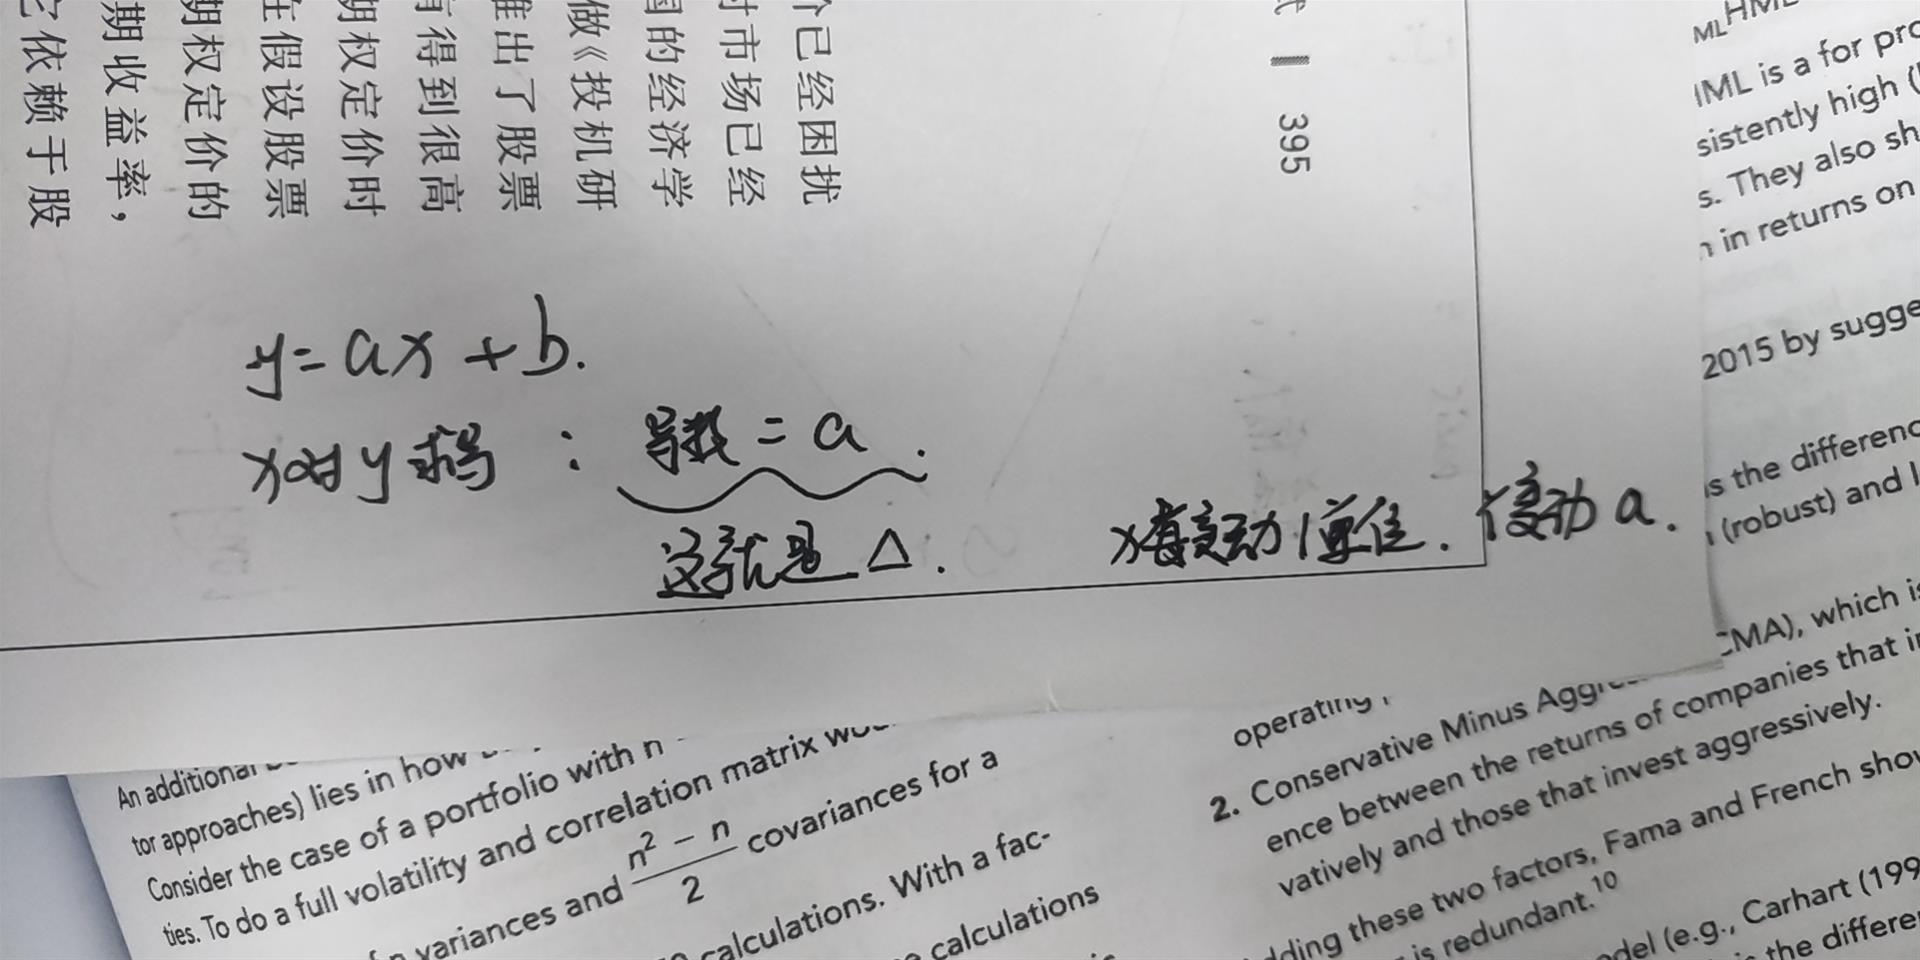 个已经困扰
时市场已经
国的经济学
做《投机研
推出了股票
有得到很高
期权定价时
在假设股票
期权定价的
期收益率，
它依赖于股
395
y=ax+b.
x对y求导：导数=a.
这就是△.
x每变动1单位.
变动a.
MLHML
HML is a for pro
sistently high (
s. They also sh
n in returns on
2015 by sugge
is the differenc
(robust) and
CMA), which is
operating
2. Conservative Minus Aggre
ence between the returns of companies that i
vatively and those that invest aggressively.
dding these two factors, Fama and French show
is redundant.10
odel (e.g., Carhart (199
the differe
An additional
tor approaches) lies in how
Consider the case of a portfolio with n
ties. To do a full volatility and correlation matrix wou
n variances and n² − n / 2 covariances for a
calculations. With a fac-
calculations